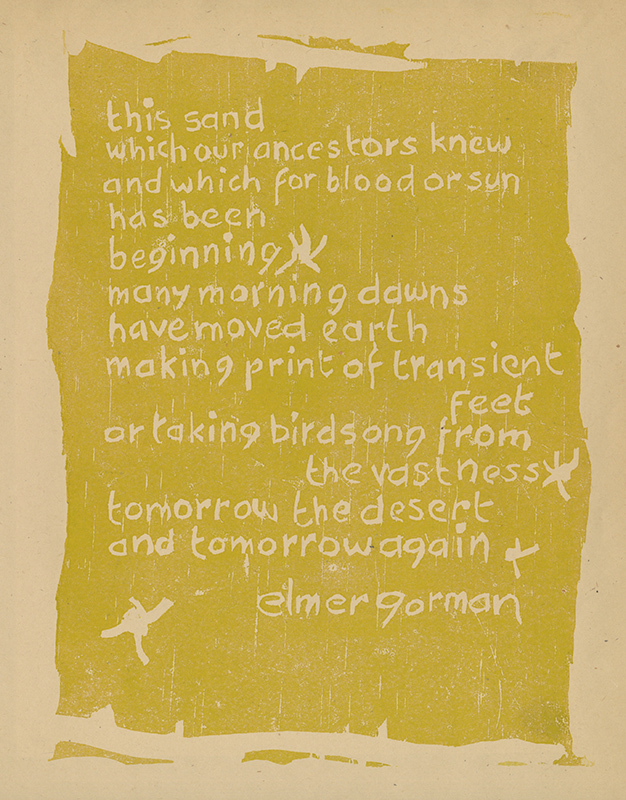 this sand
which our ancestors knew
and which for blood or sun
has been
beginning
many morning dawns
have moved earth
making print of transient
feet
or taking birdsong from
the vastness
tomorrow the desert
and tomorrow again
elmer gorman